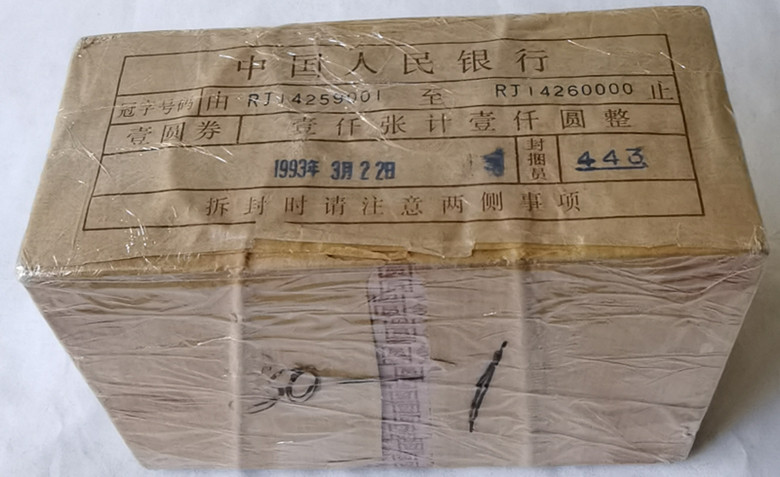 中国人民银行
冠字号码 由 RJ14259001 至 RJ14260000 止
壹圆券 壹仟张计壹仟圆整
1993年 3月22日 封捆员 443
拆封时请注意两侧事项